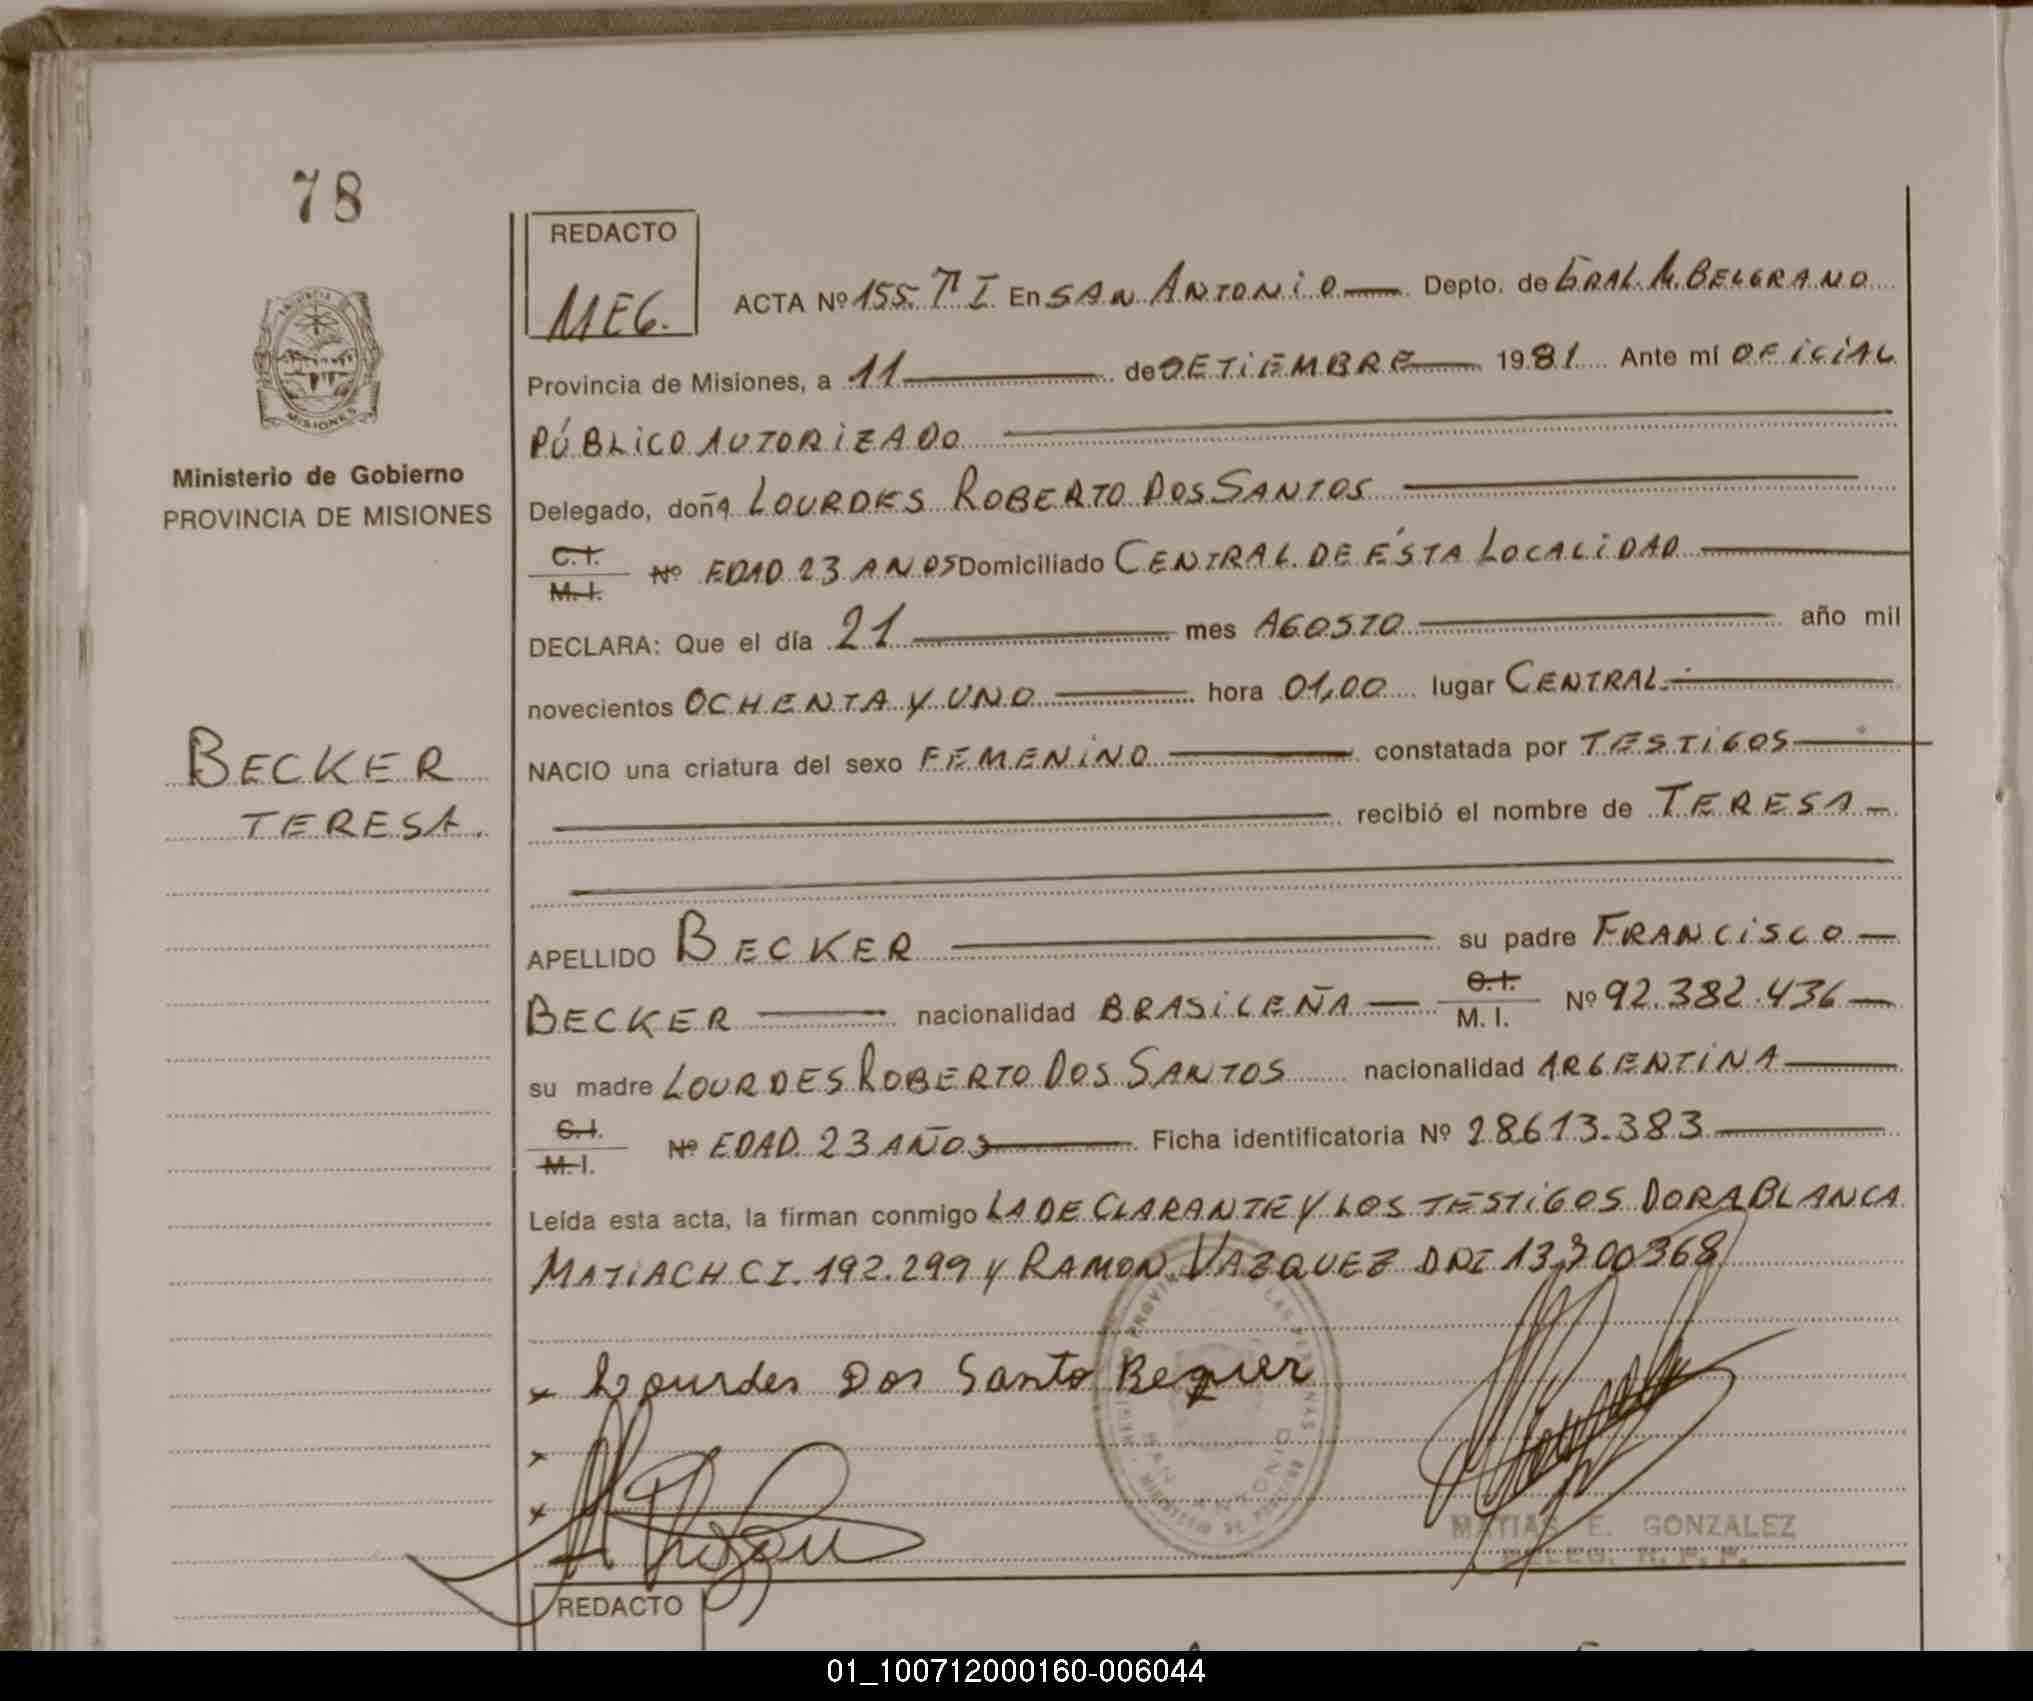 78
REDACTO
MEG.
ACTA Nº 155. Tº I En SAN ANTONIO Depto. de GRAL. M. BELGRANO
Provincia de Misiones, a 11 de SETIEMBRE 1981 Ante mí OFICIAL
PÚBLICO AUTORIZADO
Delegado, doña LOURDES ROBERTO DOS SANTOS
C.I. M.I. Nº EDAD 23 ANOS Domiciliado CENTRAL DE ÉSTA LOCALIDAD
DECLARA: Que el día 21 mes AGOSTO año mil
novecientos OCHENTA Y UNO hora 01,00 lugar CENTRAL.
NACIO una criatura del sexo FEMENINO constatada por TESTIGOS
recibió el nombre de TERESA
APELLIDO BECKER su padre FRANCISCO
BECKER nacionalidad BRASILEÑA C.I. M.I. Nº 92.382.436
su madre LOURDES ROBERTO DOS SANTOS nacionalidad ARGENTINA
C.I. M.I. Nº EDAD. 23 AÑOS Ficha identificatoria Nº 28613.383
Leída esta acta, la firman conmigo LA DECLARANTE Y LOS TESTIGOS DORA BLANCA
MATIACH CI. 192.299 Y RAMON VAZQUEZ DNI 13.700368
x Lourdes Dos Santo Bequer
x
x
MATIAS E. GONZALEZ
DELEG. R. P. P.
REDACTO
PROVINCIA MISIONES
Ministerio de Gobierno
PROVINCIA DE MISIONES
BECKER
TERESA.
SAN ANTONIO
01_100712000160-006044